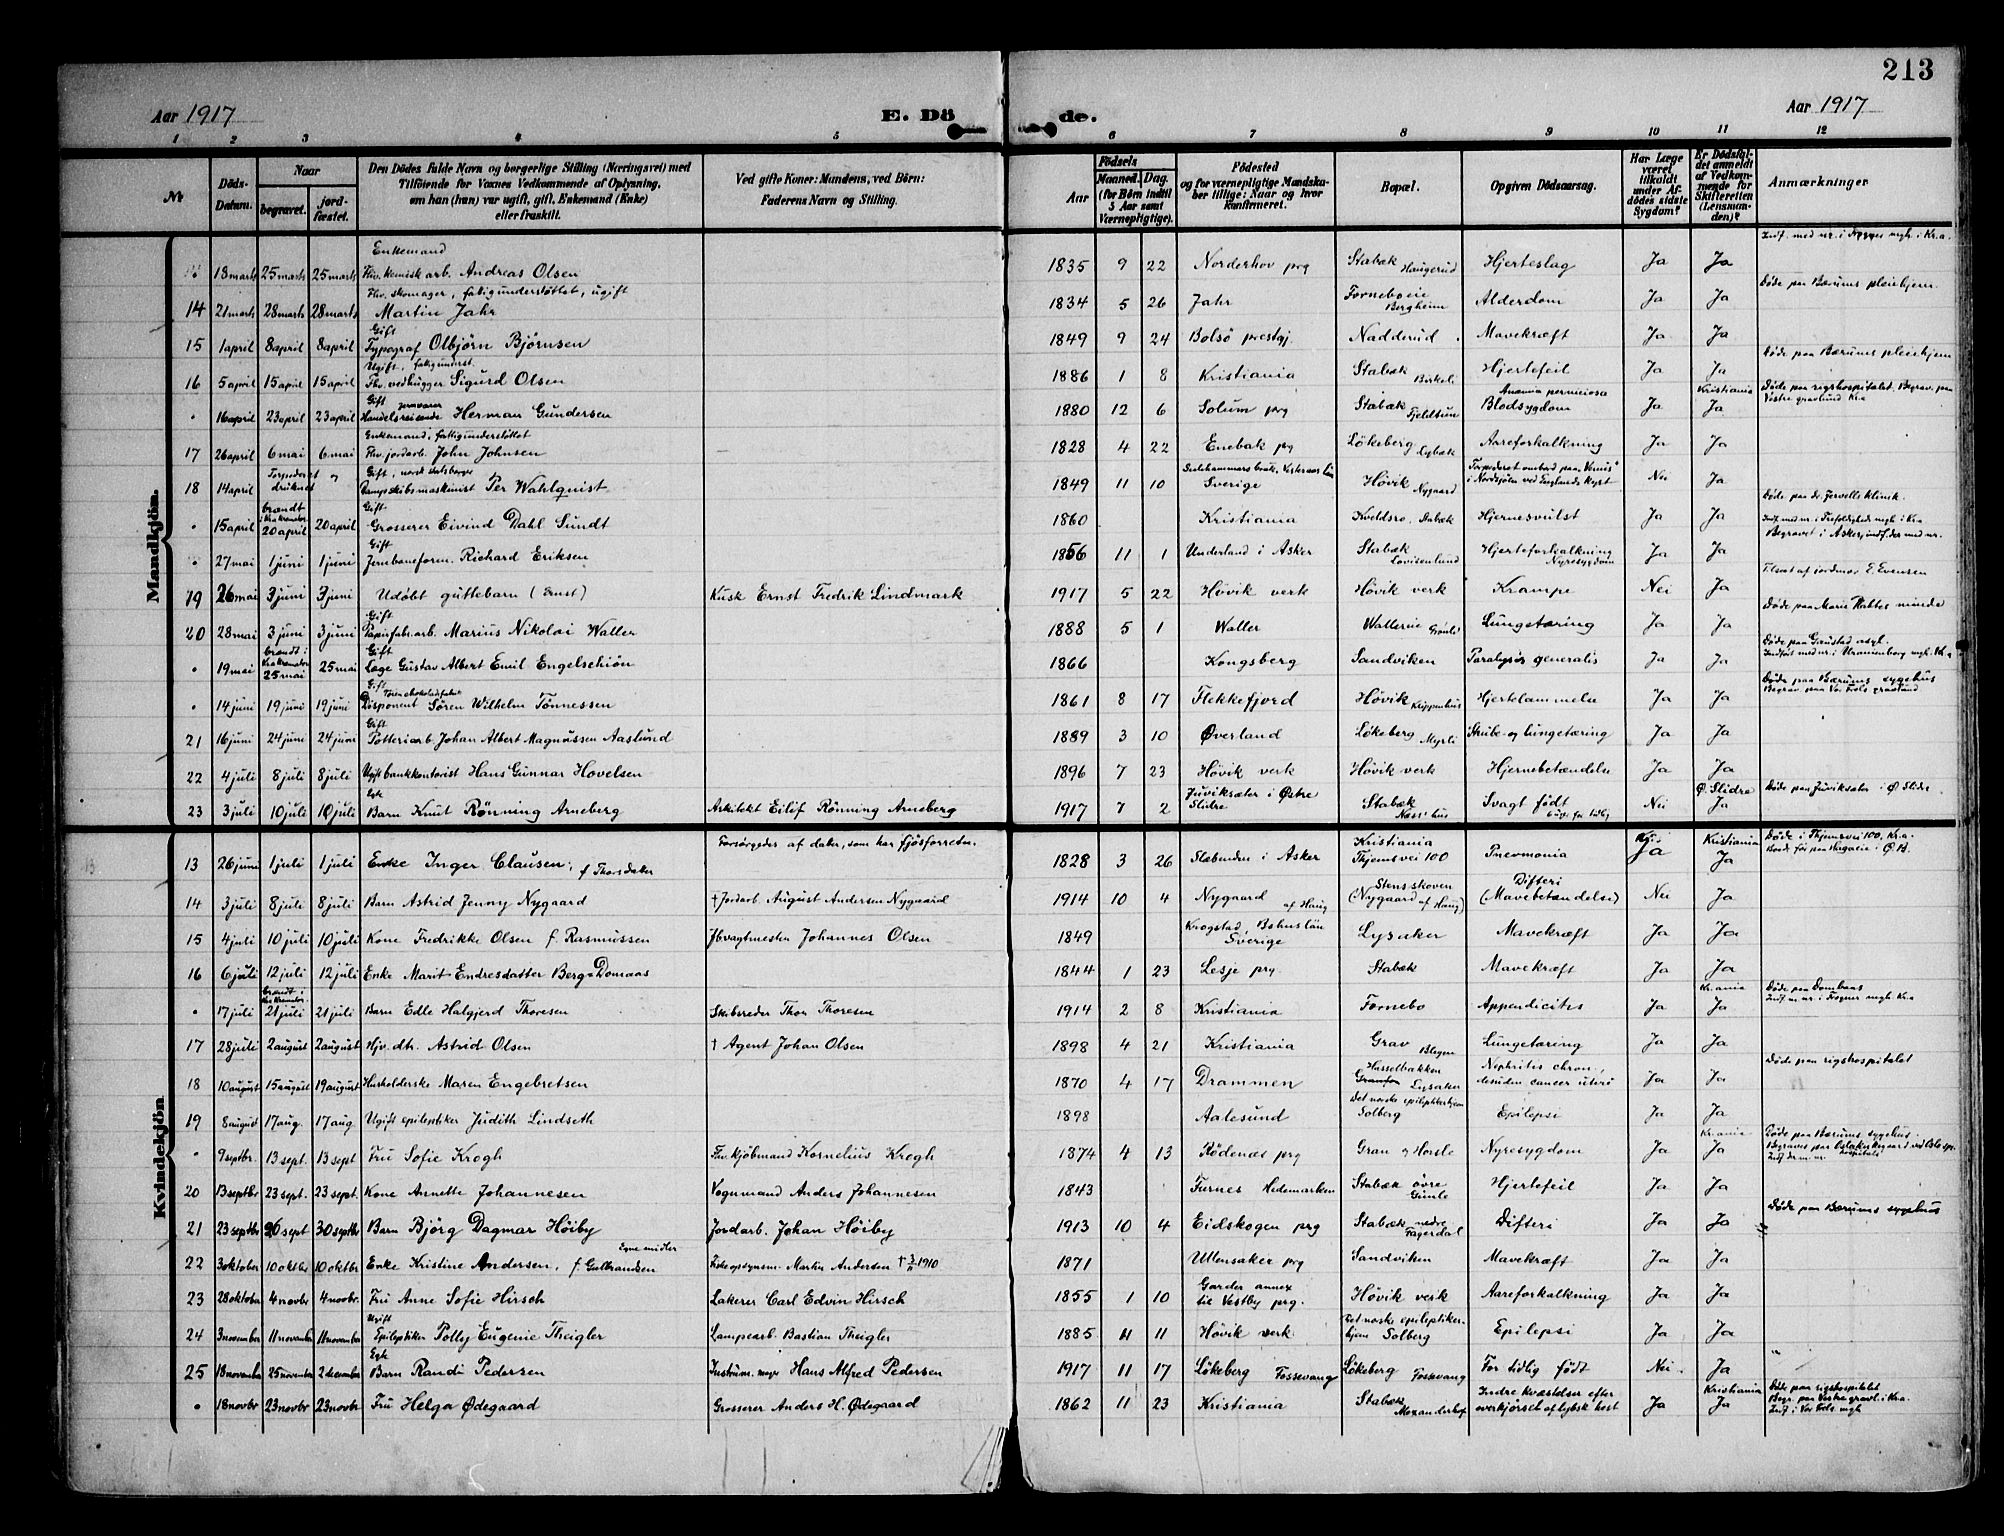 213
Aar 1917
E. Dö
de.
Aar 1917
1 2 3 4 5 6 7 8 9 10 11 12
Nr
Döds-Datum.
Naar
begravet.
jord-fæstet.
Den Dödes fulde Navn og borgerlige Stilling (Næringsvei) med
Tilföiende for Voxnes Vedkommende af Oplysning,
om han (hun) var ugift, gift, Enkemand (Enke)
eller fraskilt.
Ved gifte Koner: Mandens, ved Börn:
Faderens Navn og Stilling.
Födsels
Aar
Maaned. Dag.
(for Börn indtil
5 Aar samt
Værnepligtige).
Födested
og for værnepligtige Mandska-
ber tillige: Naar og hvor
konfirmeret.
Bopæl.
Opgiven Dödsaarsag.
Har Læge
været
tilkaldt
under Af-
dödes sidste
Sygdom?
Er Dödsfal-
det anmeldt
af Vedkom-
mende for
Skifteretten
(Lensman-
den)?
Anmærkninger
Mandkjön.
18 marts 25 marts 25 marts Enkemand Fhv. kemisk arb. Andreas Olsen 1835 9 22 Norderhov prg Stabæk Haugerud Hjerteslag Ja Ja Indf. med nr. i Frogner mgh. i Kr.a.
14 21 marts 28 marts 28 marts Fhv. skomager, fattigunderstöttet, ugift Martin Jahr 1834 5 26 Jahr Forneboeie Bergheim Alderdom Ja Ja Döde paa Bærums pleiehjem.
15 1 april 8 april 8 april Gift Typograf Olbjörn Björnsen 1849 9 24 Bolsö prestgj. Nadderud Mavekræft Ja Ja
16 5 april 15 april 15 april Ugift, fattigunderst. Fhv. vedhugger Sigurd Olsen 1886 1 8 Kristiania Stabæk Birkeli Hjertefeil Ja Ja Döde paa Bærums pleiehjem
" 16 april 23 april 23 april Gift Handelsreisende jernvarer Herman Gundersen 1880 12 6 Solum prg Stabæk Fjeldtun Anæmia perniciosa Blodsygdom Ja Kristiania Ja Döde paa rigshospitalet. Begrav. paa Vestre gravlund Kra
17 26 april 6 mai 6 mai Enkemand, fattigunderstöttet Fhv. jordarb. John Johnsen 1828 4 22 Enebak prg Lökeberg Lybæk Aareforkalkning Ja Ja
18 14 april Torpederet druknet " Gift, norsk statsborger Dampskibsmaskinist Per Wahlquist 1849 11 10 Surahammars bruk, Vesteraas län Sverige Høvik Nygaard Torpederet ombord paa "Venus" i Nordsjöen ved Englands kyst Nei Ja
" 15 april brændt i Kra kremator. 20 april 20 april Gift Grosserer Eivind Dahl Sundt 1860 Kristiania Kveldsro, Stabæk Hjernesvulst Ja Ja Döde paa dr. Jervells klinik. Indf. med nr. i Trefoldigheds mgh i Kra
" 27 mai 1 juni 1 juni Gift Jernbaneform. Richard Eriksen 1856 11 1 Underland i Asker Stabæk Lovisenlund Hjerteforkalkning Nyresygdom Ja Ja Begravet i Asker, indf. der med nr.
19 26 mai 3 juni 3 juni Udöbt guttebarn (Ernst) Kusk Ernst Fredrik Lindmark 1917 5 22 Høvik verk Høvik verk Krampe Nei Ja Tilsæt af jordmor E. Evensen
20 28 mai 3 juni 3 juni Gift Papirfabr.arb. Marius Nikolai Waller 1888 5 1 Waller Wallereie Grönli Lungetæring Ja Ja Döde paa Marie Plahtes minde
" 19 mai brændt i Kra krematori 25 mai 25 mai Gift Læge Gustav Albert Emil Engelschiön 1866 Kongsberg Sandviken Paralysis generalis Ja Ja Döde paa Gaustad asyl. Indfört med nr. i Uranienborg mgh. Kra
" 14 juni 19 juni 19 juni Gift Disponent Sören Wilhelm Tönnessen 1861 8 17 Flekkefjord Høvik Krippenhus Hjertelammelse Ja Ja Döde paa Bærums sygehus Begrav. paa Vor Frels. gravlund
21 16 juni 24 juni 24 juni Gift Potteriarb. Johan Albert Magnussen Aaslund 1889 3 10 Øverland Lökeberg Myrli Strube- og lungetæring Ja Ja
22 4 juli 8 juli 8 juli Ugift bankkontorist Hans Gunnar Hovelsen 1896 7 23 Høvik verk Høvik verk Hjernebetændelse Ja Ja
23 3 juli 10 juli 10 juli Egte Barn Knut Rönning Arneberg Arkitekt Eilif Rönning Arneberg 1917 7 2 Juviksæter i Østre Slidre Stabæk Næss' hus Svagt födt Nei Ø. Slidre Ja Döde paa Juviksæter i Ø Slidre
Kvindekjön
13 26 juni 1 juli 1 juli Enke Inger Clausen, f Thorsdatter Forsörgedes af datter, som har fjösforretn. 1828 3 26 Slæbenden i Asker Kristiania Thjemsvei 100 Pnevmonia Ja Kristiania Ja Döde i Thjemsvei 100, Kr.a.
14 3 juli 8 juli 8 juli Barn Astrid Jenny Nygaard † Jordarb. August Andersen Nygaard 1914 10 4 Nygaard af Haug Stensskoven (Nygaard af Haug) Difteri (Mavebetændelse) Nei Ja
15 4 juli 10 juli 10 juli Kone Fredrikke Olsen f. Rasmussen Jbvagtmester Johannes Olsen 1849 Krogstad, Bohuslän Sverige Lysaker Mavekræft Ja Ja
16 6 juli 12 juli 12 juli Enke Marit Endresdatter Berg-Domaas 1844 1 23 Lesje prg Stabæk Mavekræft Ja Ja
" 17 juli brændt i Kra krematori. 21 juli 21 juli Barn Edle Halgjerd Thoresen Skibsreder Thor Thoresen 1914 2 8 Kristiania Fornebo Appendicitis Ja Kr.ania Ja Döde paa Dombaas Indf. m. nr. i Frogner mgh. Kra
17 28 juli 2 august 2 august Hjv. dtr. Astrid Olsen † Agent Johan Olsen 1898 4 21 Kristiania Grav Lungetæring Ja Ja
18 10 august 15 august 19 august Husholderske Maren Engebretsen 1870 4 17 Drammen Hasselbakken Lysaker Nephritis chron., desuden cancer uteri Ja Ja Döde paa rigshospitalet
19 8 august 17 aug. 17 aug Ugift epileptiker Judith Lindseth 1898 Aalesund Det norske epileptikerhjem Solberg Epilepsi Ja Ja
" 9 septbr. 13 sept. 13 sept Fru Sofie Krogh Fhv kjöbmand Kornelius Krogh 1874 4 13 Rödenæs prg Grav Nyresygdom Ja Kr.ania Ja Döde paa Bærums sygehus.
20 13 septbr 23 sept. 23 sept. Kone Annette Johannesen Vognmand Anders Johannesen 1843 Furnes Hedemarken Stabæk övre Gimle Hjertefeil Ja Ja
21 23 septbr 26 sept 30 septbr Barn Björg Dagmar Höiby Jordarb. Johan Höiby 1913 10 4 Eidskogen prg Stabæk nedre Fagerdal Difteri Ja Ja Döde paa Bærums sygehus
22 3 oktober 10 oktbr 10 oktbr Enke Kristine Andersen, f. Gulbrandsen Egne midler Martin Andersen † 1910 1871 Ullensaker prg Sandviken Mavekræft Ja Ja
23 28 oktober 4 novbr 4 novbr. Fru Anne Sofie Hirsch Lakerer Carl Edvin Hirsch 1855 1 10 Garder annex til Vestby prg. Høvik verk Aareforkalkning Ja Ja
24 3 november 11 november 11 november Ugift Epileptiker Polly Eugenie Theigler Lampearb. Bastian Theigler 1885 11 11 Høvik verk Det norske epileptiker-hjem Solberg Epilepsi Ja Ja
25 18 november 25 november 2 december Egte Barn Randi Pedersen Instrum. mager Hans Alfred Pedersen 1917 11 17 Lökeberg Fossevang Lökeberg Fossevang For tidlig födt Nei Ja
" 18 novbr 23 novbr 23 novbr Fru Helga Ødegaard Grosserer Anders H. Ødegaard 1862 11 23 Kristiania Stabæk Alexanderhof Indre kvæstelser efter overkjörsel af lybsk hest Ja Kristiania Ja Döde paa rigshospitalet Begr. paa Vestre gravl. i Kra. Indf. i Vor Frels. mgh